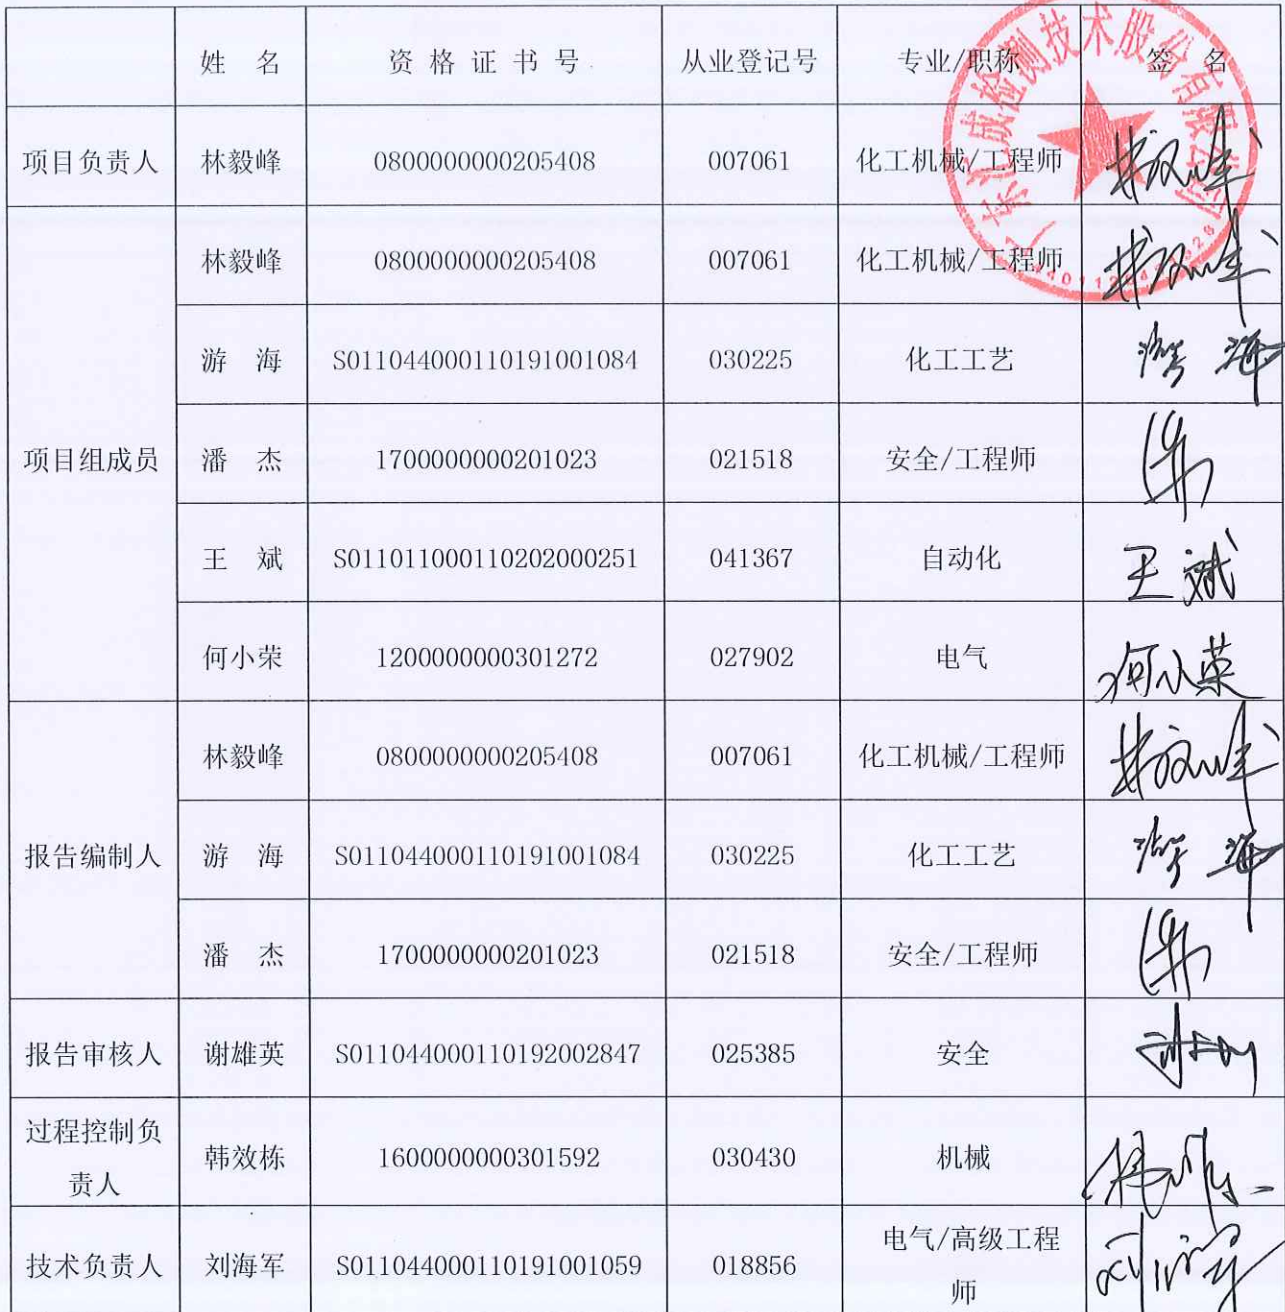 姓 名 资 格 证 书 号 从业登记号 专业/职称 签 名
项目负责人 林毅峰 0800000000205408 007061 化工机械/工程师
林毅峰 0800000000205408 007061 化工机械/工程师
游 海 S011044000110191001084 030225 化工工艺
项目组成员 潘 杰 1700000000201023 021518 安全/工程师
王 斌 S011011000110202000251 041367 自动化 王斌
何小荣 1200000000301272 027902 电气 何小荣
林毅峰 0800000000205408 007061 化工机械/工程师
报告编制人 游 海 S011044000110191001084 030225 化工工艺
潘 杰 1700000000201023 021518 安全/工程师
报告审核人 谢雄英 S011044000110192002847 025385 安全
过程控制负
责人 韩效栋 1600000000301592 030430 机械
技术负责人 刘海军 S011044000110191001059 018856 电气/高级工程
师